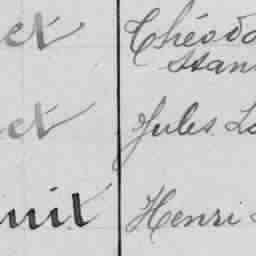 et Théodo
Stan
et Jules L
nuit Henri